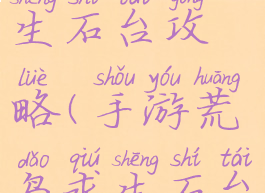 shēng shí tái gōng
生石台攻
lüè shǒu yóu huāng
略(手游荒
dǎo qiú shēng shí tái
岛求生石台